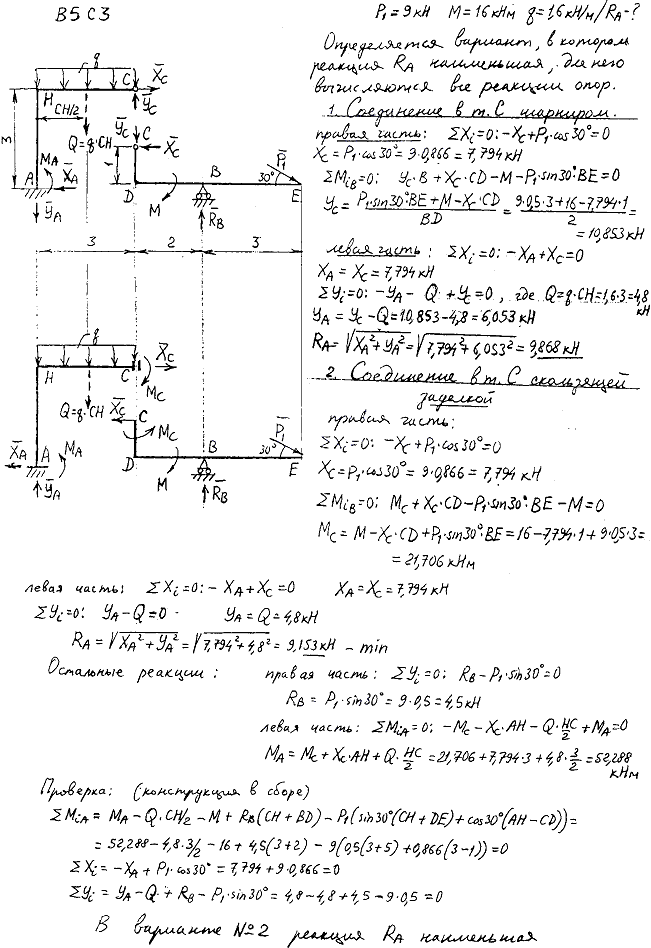 В5 С3
P₁=9кН M=16кНм q=1,6кН/м / R_A-?
Определяется вариант, в котором
реакция R_A наименьшая, для него
вычисляются все реакции опор.
1. Соединение в т. С шарниром.
правая часть: ΣXᵢ=0: -X_C+P₁·cos30°=0
X_C=P₁·cos30°=9·0,866=7,794кН
ΣM_iB=0: Y_C·B+X_C·CD-M-P₁·sin30°·BE=0
Y_C=(P₁·sin30°·BE+M-X_C·CD)/BD=(9·0,5·3+16-7,794·1)/2=
=10,853кН
левая часть: ΣXᵢ=0: -X_A+X_C=0
X_A=X_C=7,794кН
ΣYᵢ=0: -Y_A-Q+Y_C=0, где Q=q·CH=1,6·3=4,8 кН
Y_A=Y_C-Q=10,853-4,8=6,053кН
R_A=√(X_A²+Y_A²)=√(7,794²+6,053²)=9,868кН
2. Соединение в т. С скользящей
заделкой
правая часть:
ΣXᵢ=0: -X_C+P₁·cos30°=0
X_C=P₁·cos30°=9·0,866=7,794кН
ΣM_iB=0: M_C+X_C·CD-P₁·sin30°·BE-M=0
M_C=M-X_C·CD+P₁·sin30°·BE=16-7,794·1+9·0,5·3=
=21,706кНм
q
C X̄_C
H CH/2 Ȳ_C
Q=q·CH Ȳ_C C X̄_C
3 M_A 1 B 30° P̄₁
A X̄_A D M R̄_B E
Ȳ_A
3 2 3
q
H C X̄_C
M_C
Q=q·CH X̄_C C
X̄_A A M_A M_C B 30° P̄₁
D M R̄_B E
Ȳ_A
левая часть: ΣXᵢ=0: -X_A+X_C=0 X_A=X_C=7,794кН
ΣYᵢ=0: Y_A-Q=0 Y_A=Q=4,8кН
R_A=√(X_A²+Y_A²)=√(7,794²+4,8²)=9,153кН - min
Остальные реакции: правая часть: ΣYᵢ=0; R_B-P₁·sin30°=0
R_B=P₁·sin30°=9·0,5=4,5кН
левая часть: ΣM_iA=0; -M_C-X_C·AH-Q·HC/2+M_A=0
M_A=M_C+X_C·AH+Q·HC/2=21,706+7,794·3+4,8·3/2=52,288 кНм
Проверка: (конструкция в сборе)
ΣM_iA=M_A-Q·CH/2-M+R_B(CH+BD)-P₁(sin30°(CH+DE)+cos30°(AH-CD))=
=52,288-4,8·3/2-16+4,5(3+2)-9(0,5(3+5)+0,866(3-1))=0
ΣXᵢ=-X_A+P₁·cos30°=7,794+9·0,866=0
ΣYᵢ=Y_A-Q+R_B-P₁·sin30°=4,8-4,8+4,5-9·0,5=0
В варианте №2 реакция R_A наименьшая